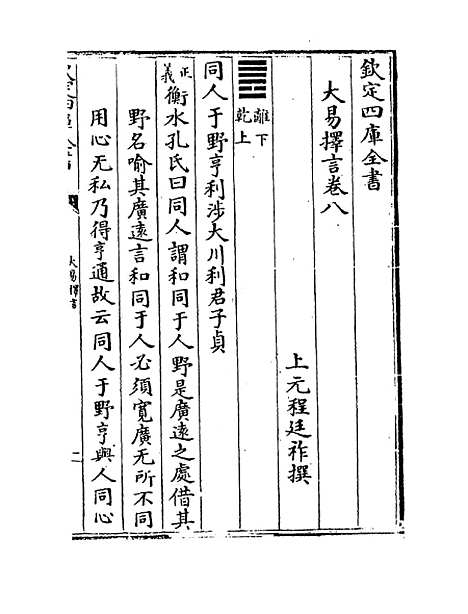 欽定四庫全書
大易擇言卷八
上元程廷祚撰
離下
乾上
同人于野亨利涉大川利君子貞
正義衡水孔氏曰同人謂和同于人野是廣遠之處借其
野名喻其廣遠言和同于人必須寛廣无所不同
用心无私乃得亨通故云同人于野亨與人同心
大易擇言